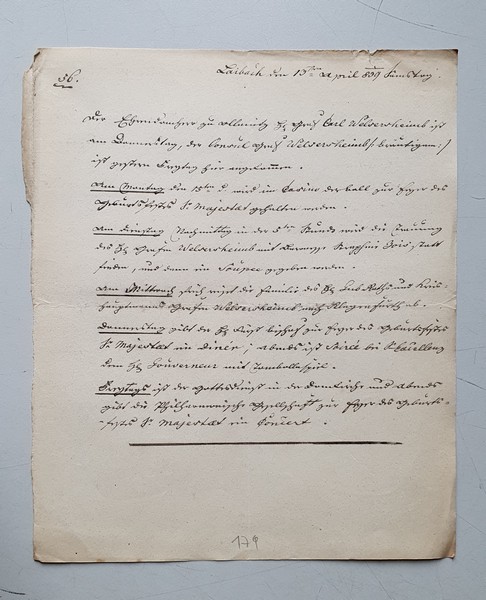 56.
Laibach den 13ten April 839 Samstag.
Der Ehrendomherr zu Ollmütz H. Graf Carl Welsersheimb ist
am Donnerstag, der Consul Graf Welsersheimb /: Bräutigam :/
ist gestern Freytag hier angekommen.
Am Montag den 15ten d. wird im Casino der Ball zur Feyer des
Geburtsfestes Sr. Majestät gehalten werden.
Am Dinstag Nachmittag in der 5ten Stunde wird die Trauung
des H. Grafen Welsersheimb mit Baronesse statt
finden, und dann ein Soupée gegeben werden.
Am Mittwoch reist die Familie des H. Gub. Raths und Kreis-
hauptmanns Grafen Welsersheimb nach Klagenfurth ab.
Donnerstag gibt der H. Fürst Bischof zur Feyer des Geburtsfestes
Sr. Majestät ein Dinér; abends ist Soirée bei Sr. Excellenz
dem H. Gouverneur mit Tombolaspiel.
Freytags ist der Gottesdienst in der Domkirche und abends
gibt die Philharmonische Gesellschaft zur Feyer des Geburts-
-festes Sr. Majestät ein Concert.
179